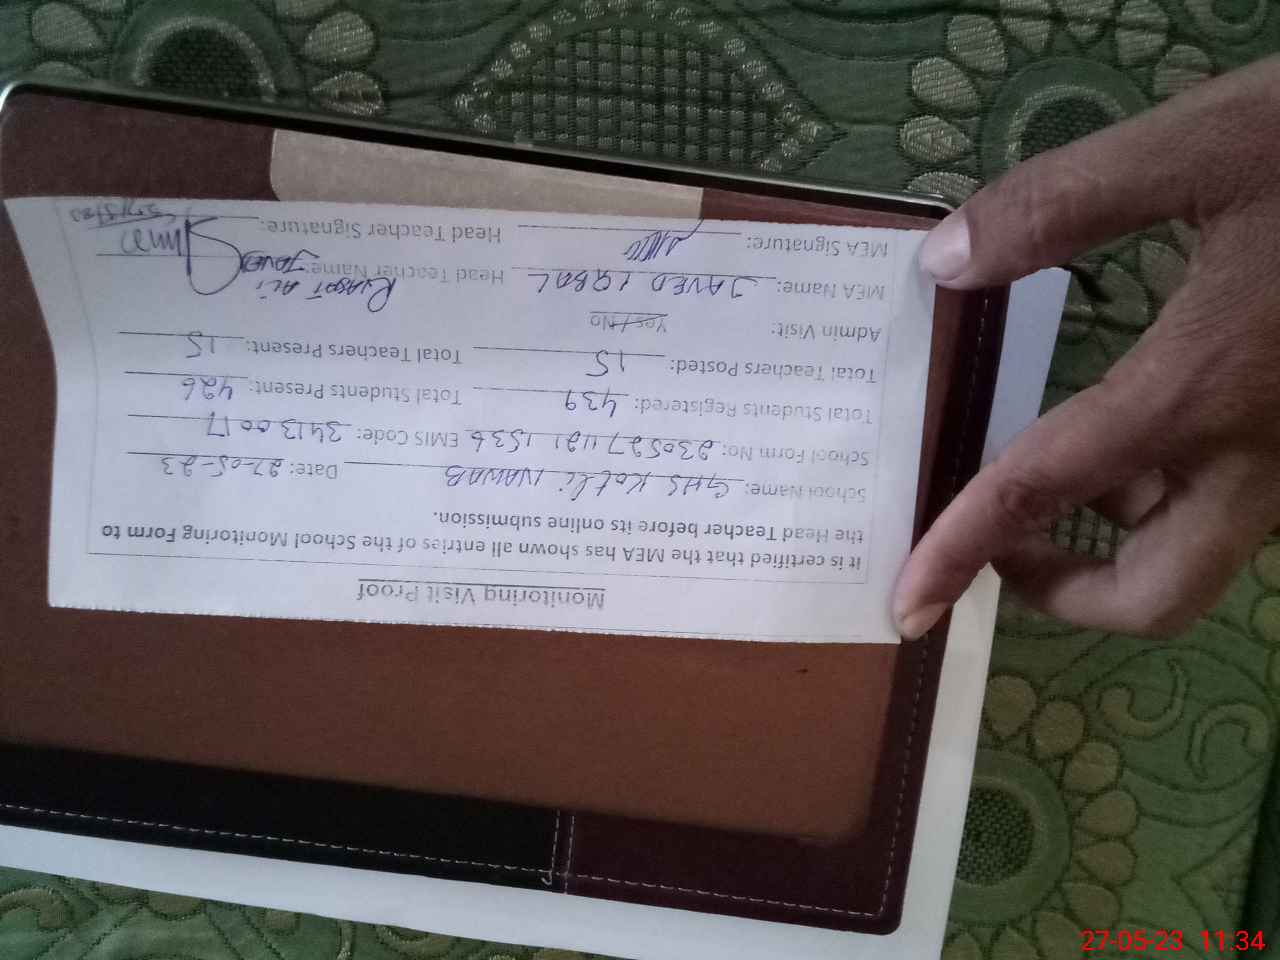 Monitoring Visit Proof
It is certified that the MEA has shown all entries of the School Monitoring Form to
the Head Teacher before its online submission.
School Name: GHS Kotli NAWAB Date: 27-05-23
School Form No: 230527 421 1536 EMIS Code: 34130017
Total Students Registered: 439 Total Students Present: 426
Total Teachers Posted: 15 Total Teachers Present: 15
Admin Visit: Yes/No
MEA Name: JAVED IQBAL Head Teacher Name: ALI JAVED
MEA Signature: Head Teacher Signature:
27-05-23 11:34